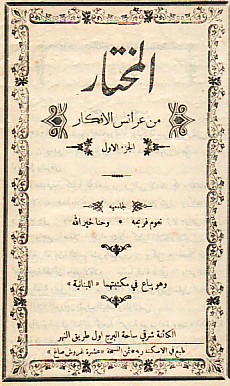 المختار
من عرائس الافكار
الجزء الاول
جامعيه
نعوم قريحه * وحنا خيرالله
وهو يباع في مكتبتهما «اللبنانية»
الكائنة شرقي ساحة البرج اول طريق النهر
طبع في ثمن النسخة «عشرة غروش صاغ»